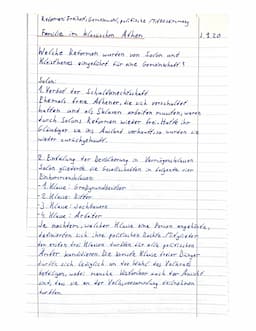 Reformen: Freiheit, Gemeinwohl, politische Mitbestimmung
Familie im klassischen Athen 2.9.20
Welche Reformen wurden von Solon und
Kleisthenes eingeführt für eine Gemeinschaft?
Solon:
1. Verbot der Schuldknechtschaft
Ehemals freie Athener, die sich verschuldet
hatten und als Sklaven arbeiten mussten, waren
durch Solons Reformen wieder frei. Hatte ihr
Gläubiger sie ins Ausland verkauft, so wurden sie
wieder zurückgeholt.
2. Einteilung der Bevölkerung in Vermögensklassen
Solon gliederte die Gesellschaft in folgende vier
Einkommensklassen:
- 1. Klasse: Großgrundbesitzer
- 2. Klasse: Ritter
- 3. Klasse: Hochbauern
- 4. Klasse: Arbeiter
Je nachdem, welcher Klasse eine Person angehörte,
definierten sich ihre politischen Rechte. Mitglieder
der ersten drei Klassen durften für alle politischen
Ämter kandidieren. Die vierte Klasse freier Bürger
durfte sich lediglich an der Wahl des Volksrats
beteiligen, wobei manche Historiker auch der Ansicht
sind, dass sie an der Volksversammlung teilnehmen
durften.